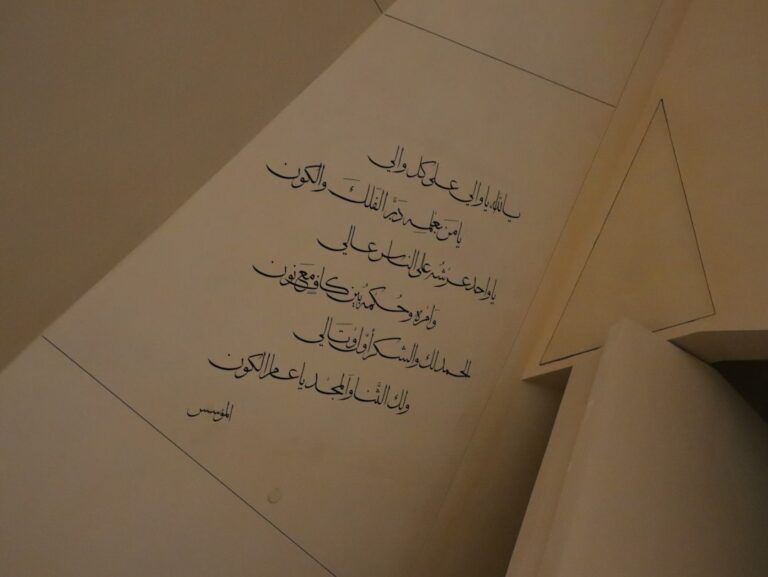 يالله ياوالي على كل والي
يا من بعلمه دبّر الفلك والكون
يا واحد عرشه على الناس عالي
وامره وحكمه بين كاف مع نون
الحمد لك والشكر أول وتالي
ولك الثنا والمجد يا عالم الكون
المؤسس